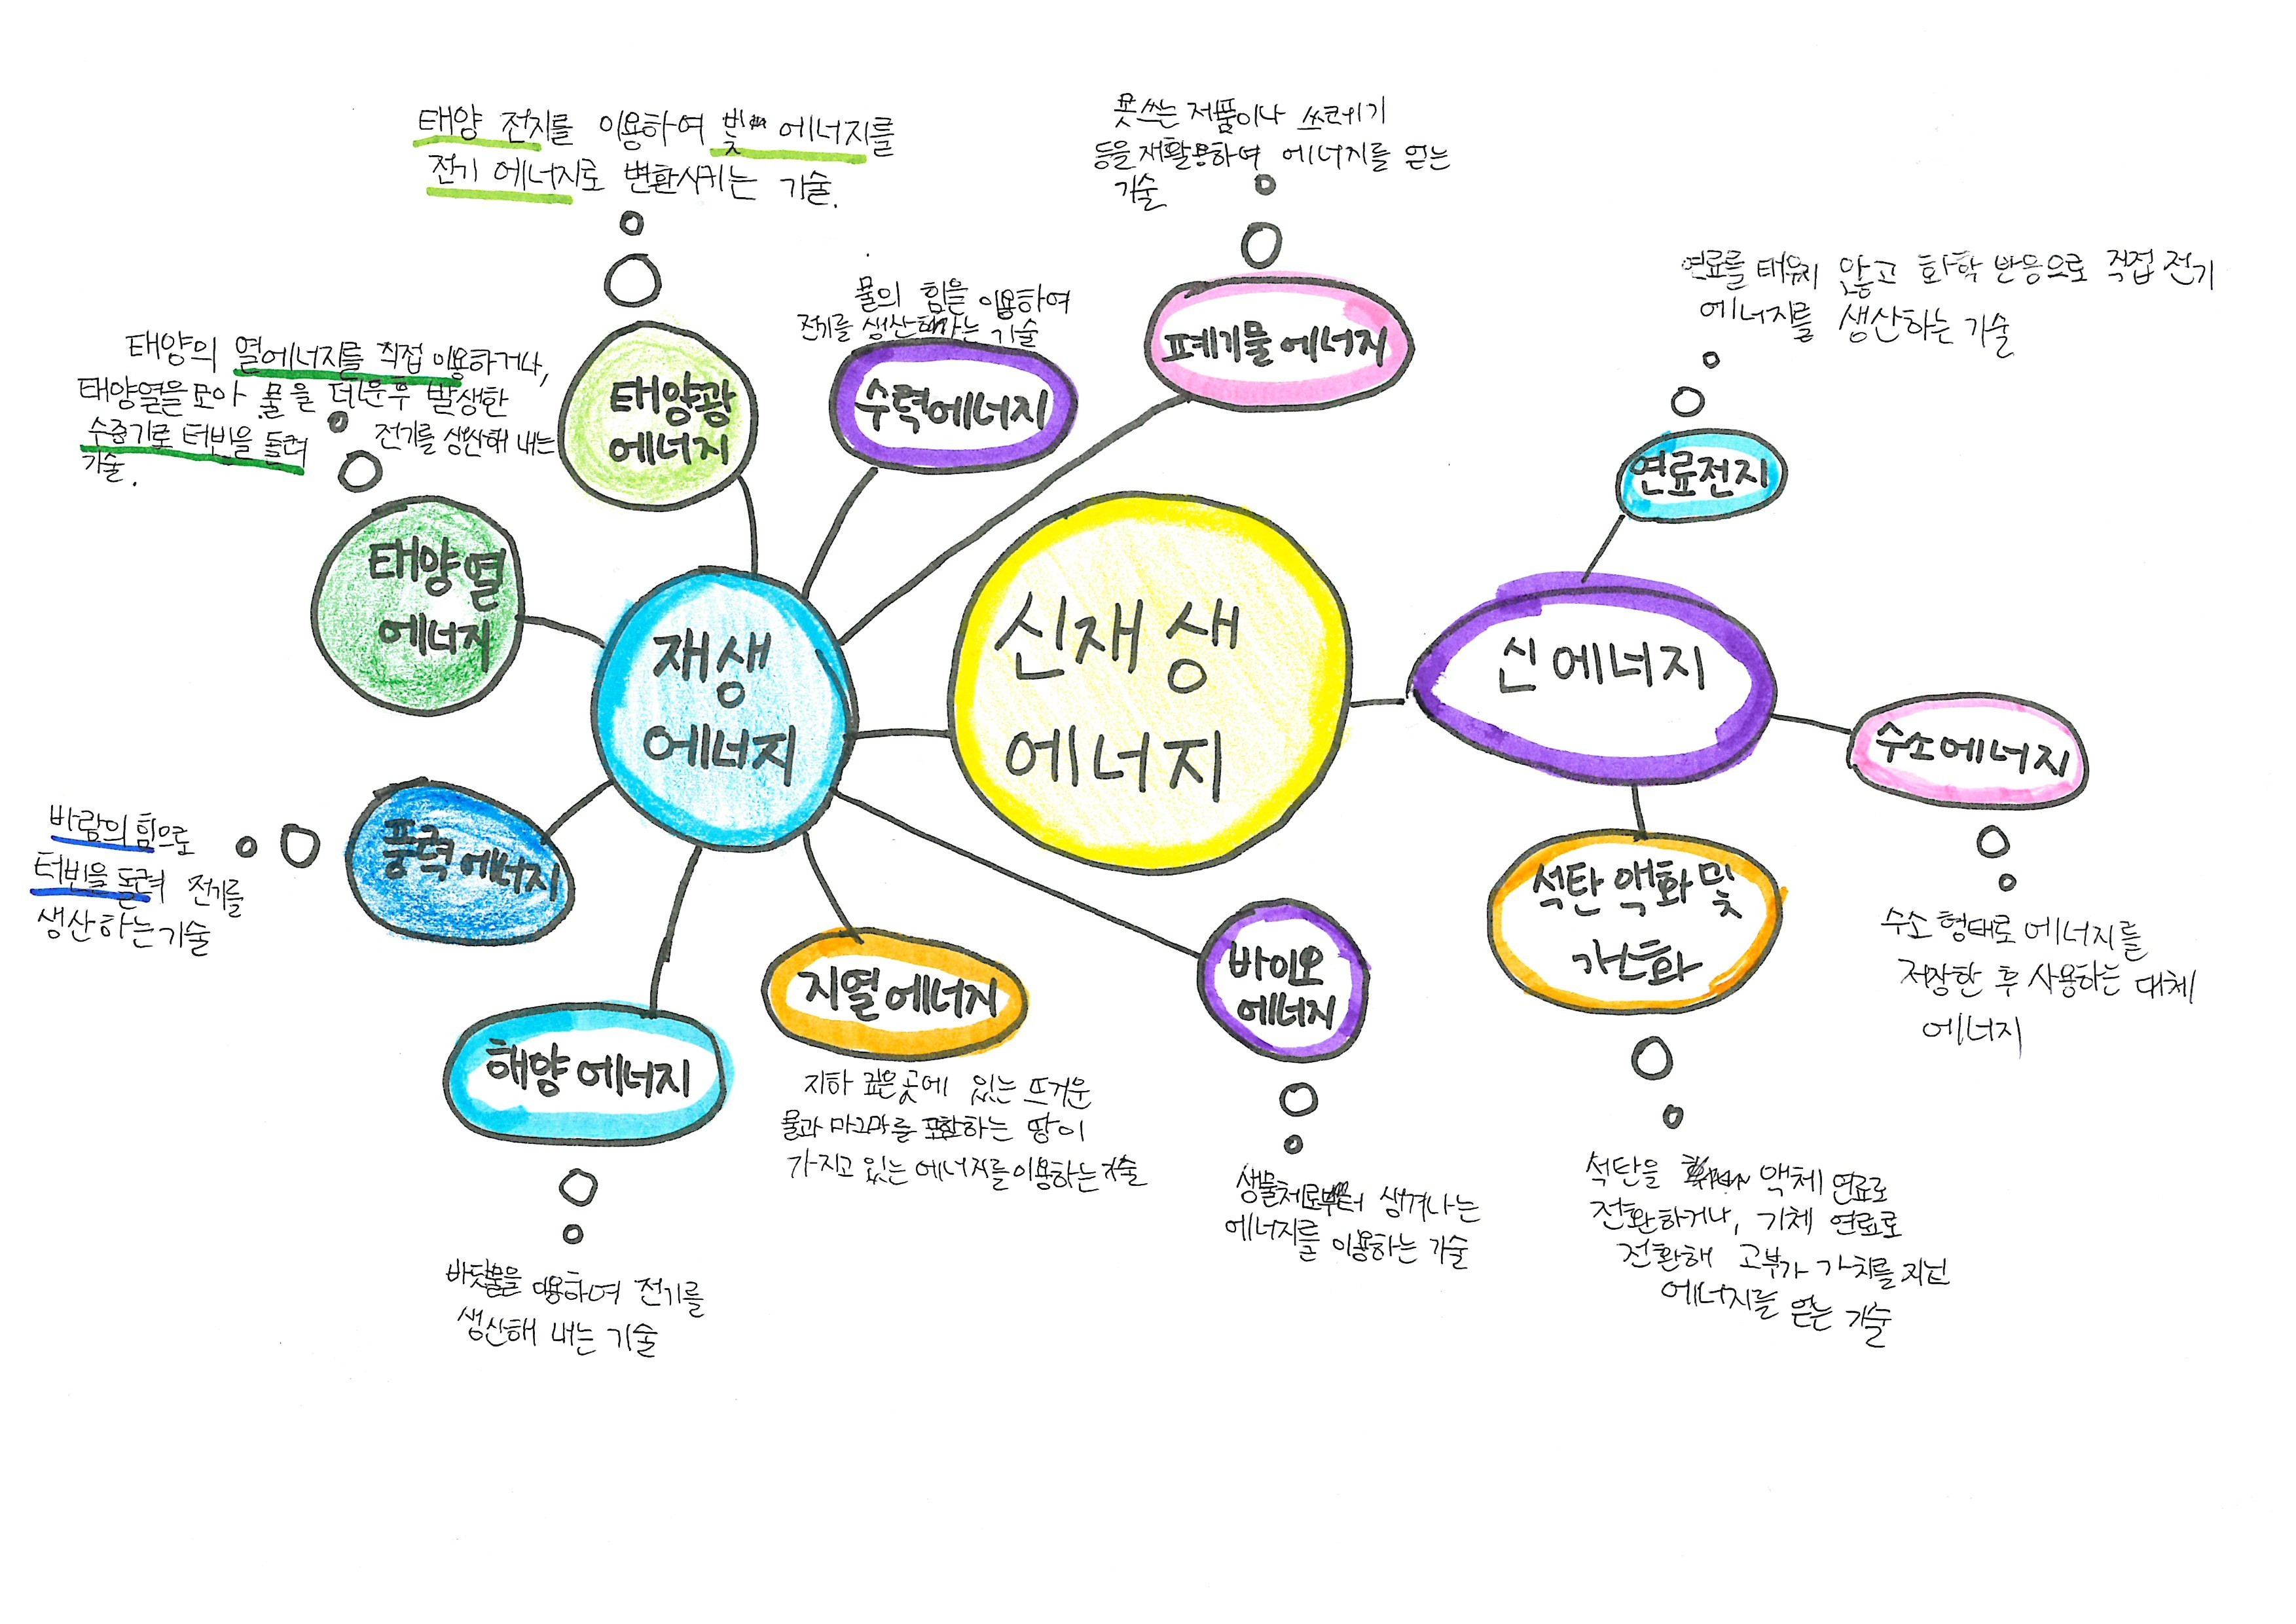 태양 전지를 이용하여 빛 에너지를
전기 에너지로 변환시키는 기술.
태양광
에너지
못쓰는 제품이나 쓰레기
등을 재활용하여 에너지를 얻는
기술
폐기물에너지
물의 힘을 이용하여
전기를 생산해내는 기술
수력에너지
연료를 태우지 않고 화학 반응으로 직접 전기
에너지를 생산하는 기술
연료전지
태양의 열에너지를 직접 이용하거나,
태양열을 모아 물을 데운후 발생한
수증기로 터빈을 돌려 전기를 생산해 내는
기술.
태양열
에너지
재생
에너지
신재생
에너지
신에너지
수소에너지
수소 형태로 에너지를
저장한 후 사용하는 대체
에너지
바람의 힘으로
터빈을 돌려 전기를
생산하는 기술
풍력에너지
해양에너지
바닷물을 이용하여 전기를
생산해 내는 기술
지열에너지
지하 깊은곳에 있는 뜨거운
물과 마그마를 포함하는 땅이
가지고 있는 에너지를 이용하는 기술
바이오
에너지
생물체로부터 생겨나는
에너지를 이용하는 기술
석탄 액화 및
가스화
석탄을 액체 연료로
전환하거나, 기체 연료로
전환해 고부가 가치를 지닌
에너지를 얻는 기술